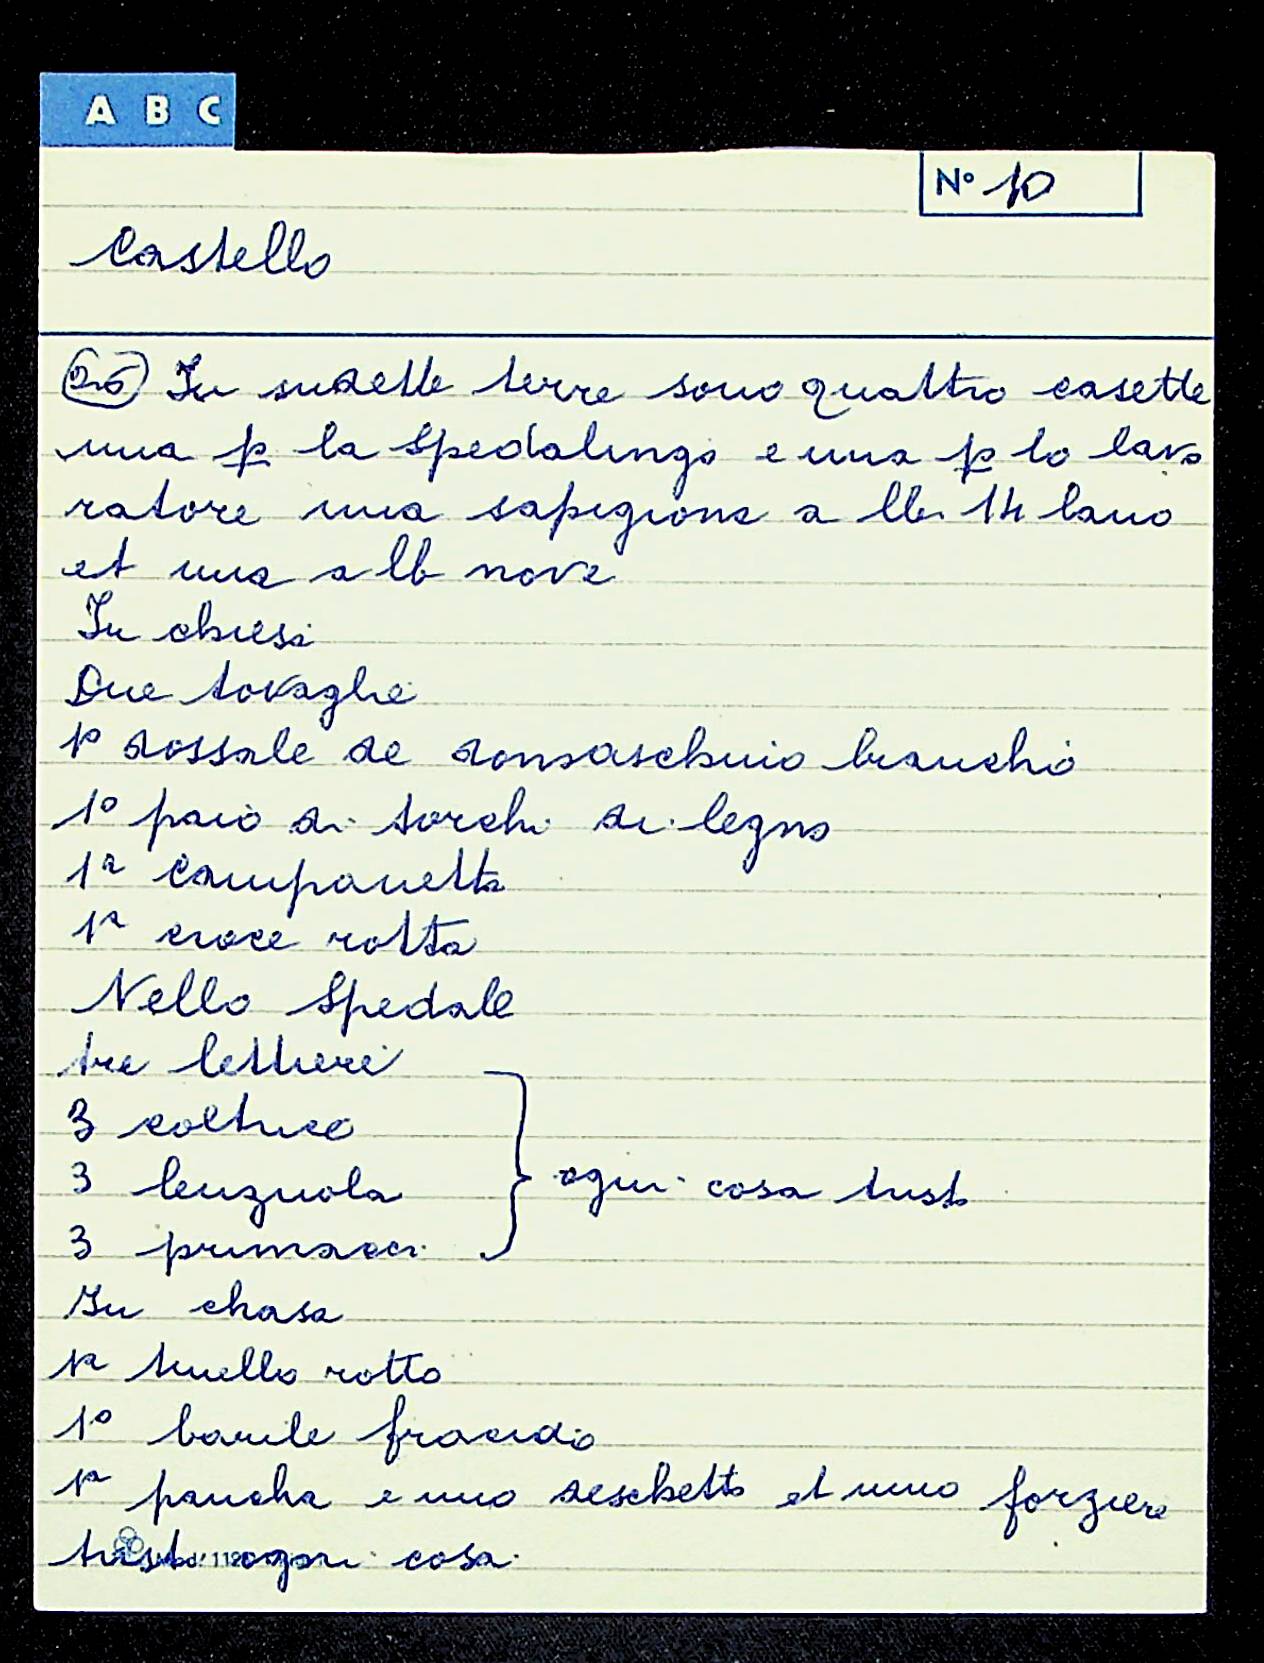 A B C
N° 10
Castello
26 In sudette terre sono quattro casette
una p la spedalingo e una p lo lavo
ratore una sapigiona a lb. 14 lano
et una a lb nove
In chiesi
Due tovaglie
1° dossale de domaschino biancho
1° paio di torchi di legno
1a campanetta
1a croce rotta
Nello Spedale
tre lettiere
3 coltrice
3 lenzuola
3 primacci
ogni cosa trist
In chasa
1a tinello rotto
1° barile fracido
1a pancha e uno deschetto et uno forziere
trist ogni cosa